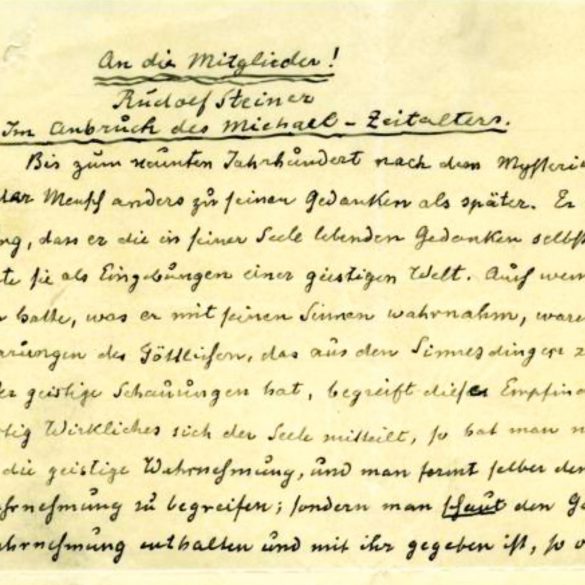 An die Mitglieder!
Rudolf Steiner
Im Anbruch des Michael-Zeitalters.
Bis zum neunten Jahrhundert nach dem Mysteri
der Mensch anders zu seinen Gedanken als später. Er
ng, dass er die in seiner Seele lebenden Gedanken selbst
te sie als Eingebungen einer geistigen Welt. Auch wen
hatte, was er mit seinen Sinnen wahrnahm, ware
arungen des Göttlichen, das aus den Sinnesdingen z
er geistige Schauungen hat, begreift diese Empfind
tig Wirkliches sich der Seele mitteilt, so hat man n
die geistige Wahrnehmung, und man formt selber den
ahrnehmung zu begreifen; sondern man schaut den Ge
ahrnehmung enthalten und mit ihr gegeben ist, so o